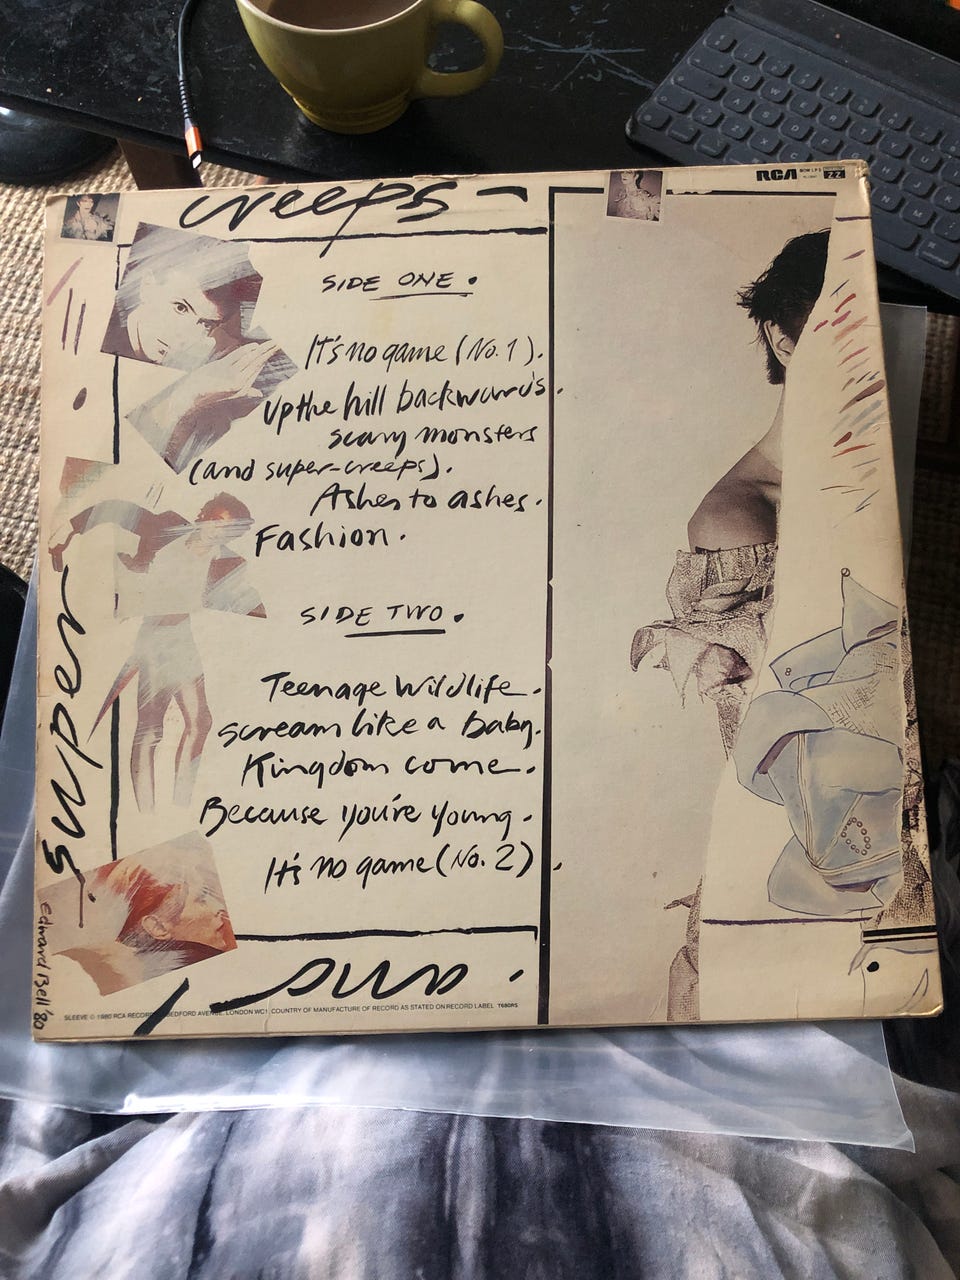 creeps -
RCA BOW LP 2
ZZ
SIDE ONE.
It's no game (No. 1).
Up the hill backwards.
scary monsters
(and super-creeps).
Ashes to ashes.
Fashion.
SIDE TWO.
Teenage Wildlife.
scream like a baby.
Kingdom come.
Because you're young.
It's no game (No. 2).
super
Edward Bell '80
SLEEVE © 1980 RCA RECORDS BEDFORD AVENUE, LONDON WC1. COUNTRY OF MANUFACTURE OF RECORD AS STATED ON RECORD LABEL